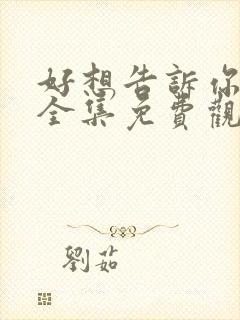 好想告訴你
全集免費觀
劉茹